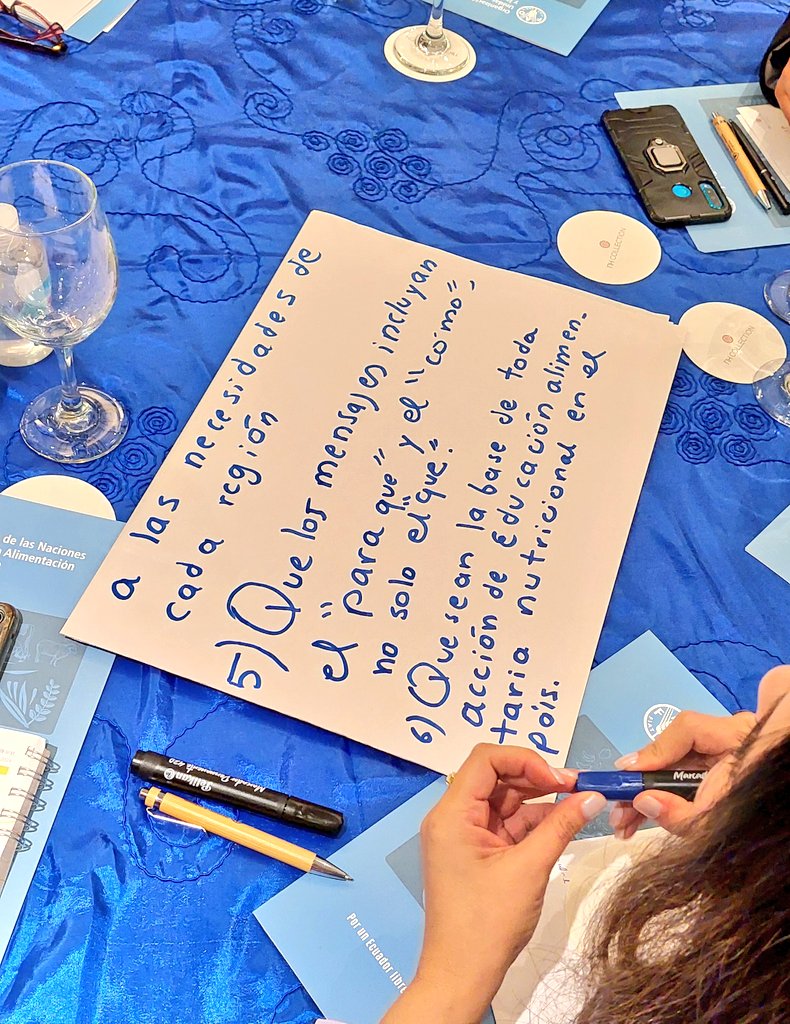 a las necesidades de
cada región
5) Que los mensajes incluyan
el "para que" y el "como",
no solo el "que".
6) Que sean la base de toda
acción de Educación alimen-
taria nutricional en el
páis.
NH COLLECTION
NH COLLECTION
de las Naciones
Alimentación
Pelikan
Marcador Permanente 420
Por un Ecuador libre